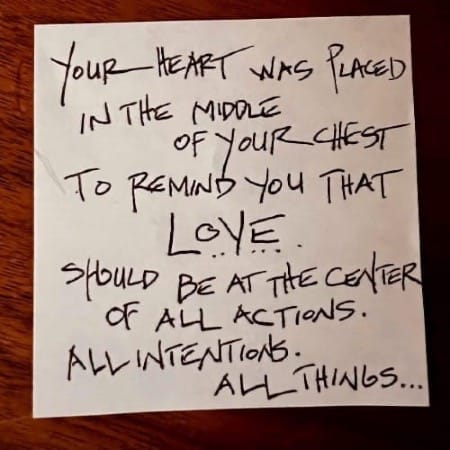 YOUR HEART WAS PLACED
IN THE MIDDLE
OF YOUR CHEST
TO REMIND YOU THAT
LOVE
SHOULD BE AT THE CENTER
OF ALL ACTIONS.
ALL INTENTIONS.
ALL THINGS...